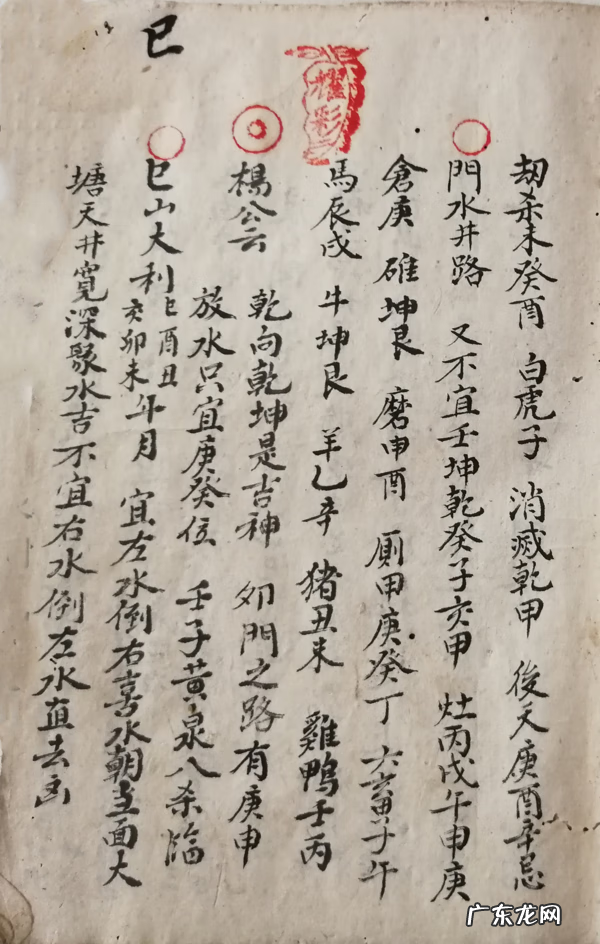 巳
劫杀未癸酉 白虎子 消滅乾甲 後天庚酉辛忌
門水井路 又不宜壬坤乾癸子亥甲 灶丙戌午申庚
倉庚 碓坤艮 磨申酉 厠甲庚癸丁 六畜子午
馬辰戌 牛坤艮 羊乙辛 猪丑未 雞鴨壬丙
楊公云 乾向乾坤是吉神 卯門之路有庚申
放水只宜庚癸位 壬子黄泉八杀臨
巳山大利 巳酉丑 亥卯未 年月 宜左水倒右喜水朝 面大
塘天井寬深聚水吉不宜右水倒左水直去凶
广东龙网